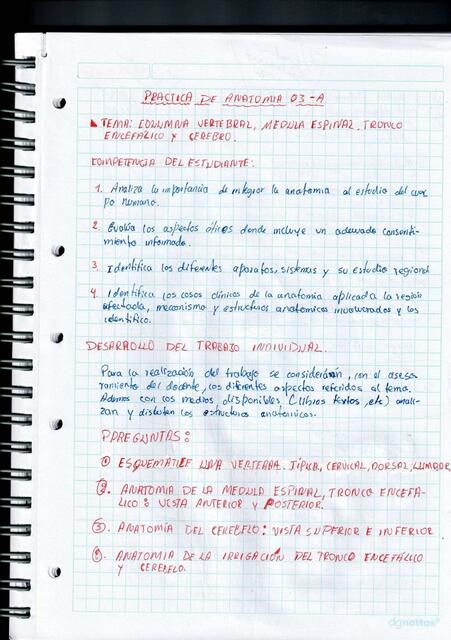 PRACTICA DE ANATOMIA 03-A
TEMA: COLUMNA VERTEBRAL, MEDULA ESPINAL, TRONCO
ENCEFÁLICO Y CEREBRO.
COMPETENCIA DEL ESTUDIANTE:
1. Analiza la importancia de integrar la anatomia al estudio del cuer
po humano.
2. Evalúa los aspectos éticos donde incluye un adecuado consenti-
miento informado.
3. Identifica los diferentes aparatos, sistemas y su estudio regional
4. Identifica los casos clínicos de la anatomia aplicada la región
afectada, mecanismo y estructuras anatomicas involucradas y los
identifico.
DESARROLLO DEL TRABAJO INDIVIDUAL.
Para la realización del trabajo se considerarán, con el aseso-
ramiento del docente, los diferentes aspectos referidos al tema.
Ademas con los medios disponibles (libros textos, etc) anali-
zan y discuten las estructuras anatomicas.
PDREGUNTAS:
① ESQUEMATICE UNA VERTEBRA: TÍPICA, CERVICAL, DORSAL, LUMBAR
②. ANATOMIA DE LA MEDULA ESPINAL, TRONCO ENCEFÁ-
LICO: VISTA ANTERIOR Y POSTERIOR.
③. ANATOMÍA DEL CEREBELO: VISTA SUPERIOR E INFERIOR
ANATOMIA DE LA IRRIGACIÓN DEL TRONCO ENCEFÁLICO
Y CEREBELO.
dgnottas